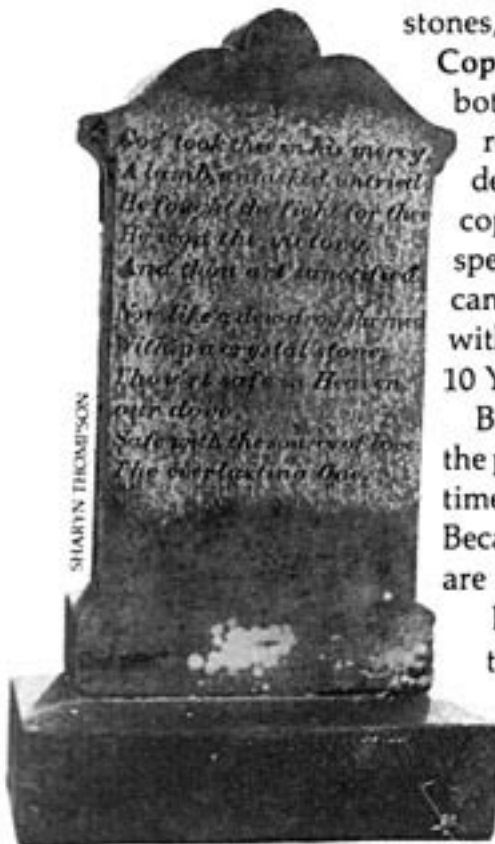 God took thee in his mercy,
A lamb untasked, untried
He fought the fight for thee
He won the victory,
And thou art sanctified
Now like a dewdrop shrined
Within a crystal stone,
Thou'rt safe in Heaven
our dove.
Safe with the source of love
The everlasting One.
SHARYN THOMPSON
stones,
Cop
bot
r
de
cop
spe
can
with
10 Y
B
the p
time
Beca
are
t